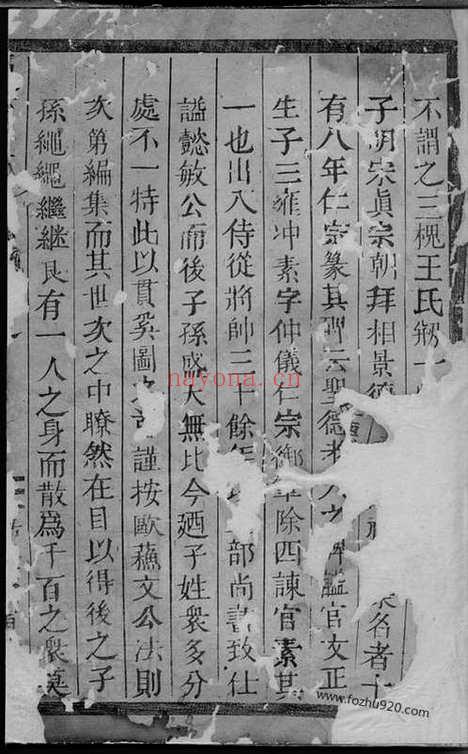 不謂之三槐王氏
子明宋眞宗朝拜相景德 名者十
有八年仁宗篆其碑云聖德老人之碑謚官文正
生子三雍冲素字仲儀仁宗御筆除四諫官素其
一也出入侍從將帥三十餘年 部尚書致仕
謚懿敏公而後子孫盛大無比今廼子姓衆多分
處不一特此以貫奚圖之 謹按歐蘓文公法則
次第編集而其世次之中瞭然在目以得後之子
孫繩繩繼継良有一人之身而散爲千百之衆莫
nayona.cn
www.fozhu920.com